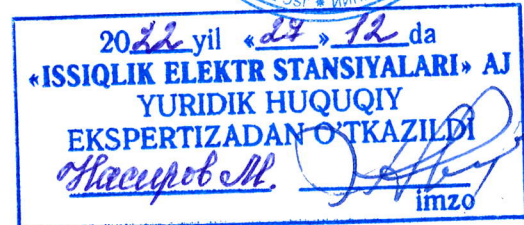 2022 yil «27» 12 da
«ISSIQLIK ELEKTR STANSIYALARI» AJ
YURIDIK HUQUQIY
EKSPERTIZADAN O'TKAZILDI
Насиров М.
imzo